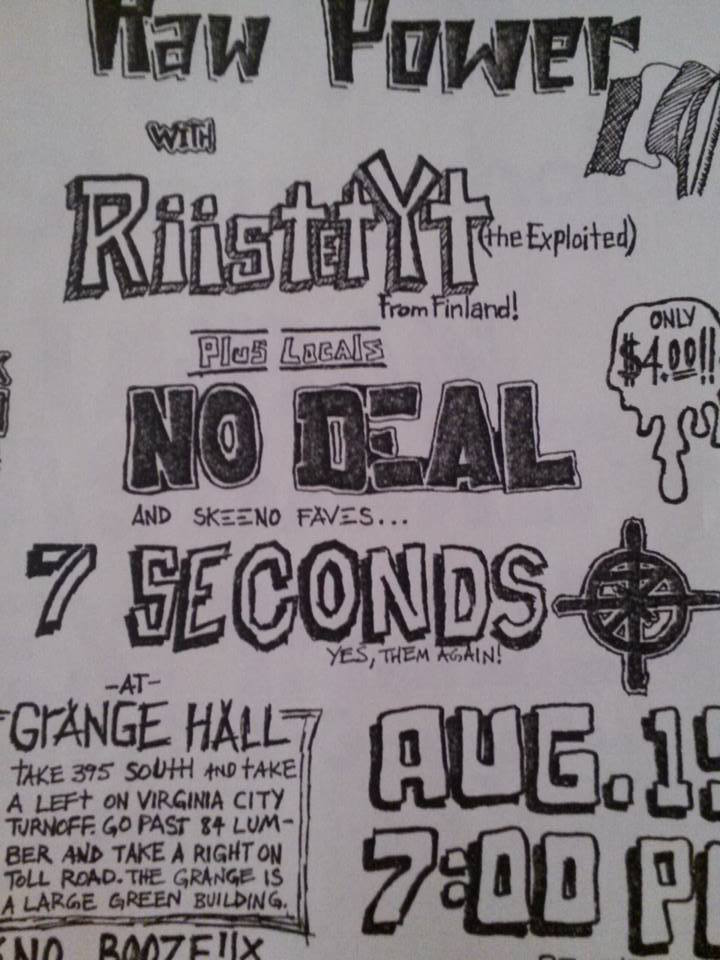 Raw Power
WITH
RiistetYt (the Exploited)
From Finland!
Plus Locals
ONLY
$4.00!!
NO DEAL
AND SKEENO FAVES...
7 SECONDS
YES, THEM AGAIN!
-AT-
GRANGE HALL
TAKE 395 SOUTH AND TAKE
A LEFT ON VIRGINIA CITY
TURNOFF. GO PAST 84 LUM-
BER AND TAKE A RIGHT ON
TOLL ROAD. THE GRANGE IS
A LARGE GREEN BUILDING.
AUG. 1
7:00 P
NO BOOZE!!X